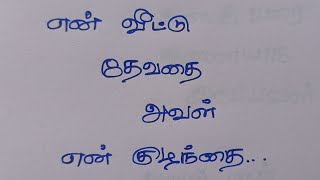 என் வீட்டு
தேவதை
அவள்
என் குழந்தை...